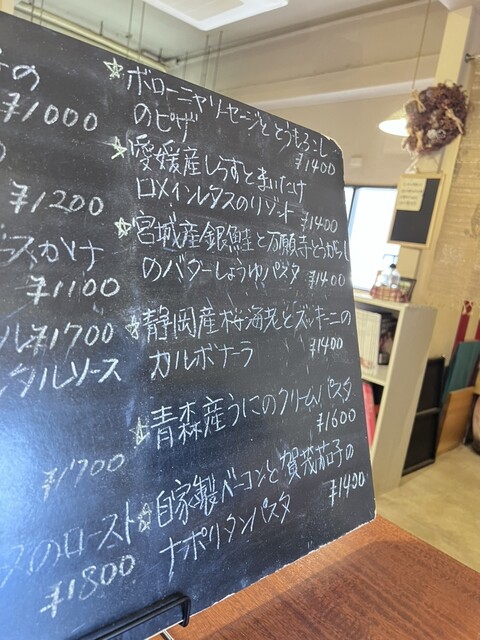 の
¥1000
¥1200
スかけ
¥1100
¥1700
タルソース
¥1700
のロースト
¥1800
☆ボローニャソーセージととうもろこし
のピザ
¥1400
☆愛媛産しらすとまいたけ
ロメインレタスのリゾット
¥1400
☆宮城産銀鮭と万願寺とうがらし
のバターしょうゆパスタ
¥1400
☆静岡産桜海老とズッキーニの
カルボナーラ
¥1400
☆青森産うにのクリームパスタ
¥1600
☆自家製ベーコンと賀茂茄子の
ナポリタンパスタ
¥1400